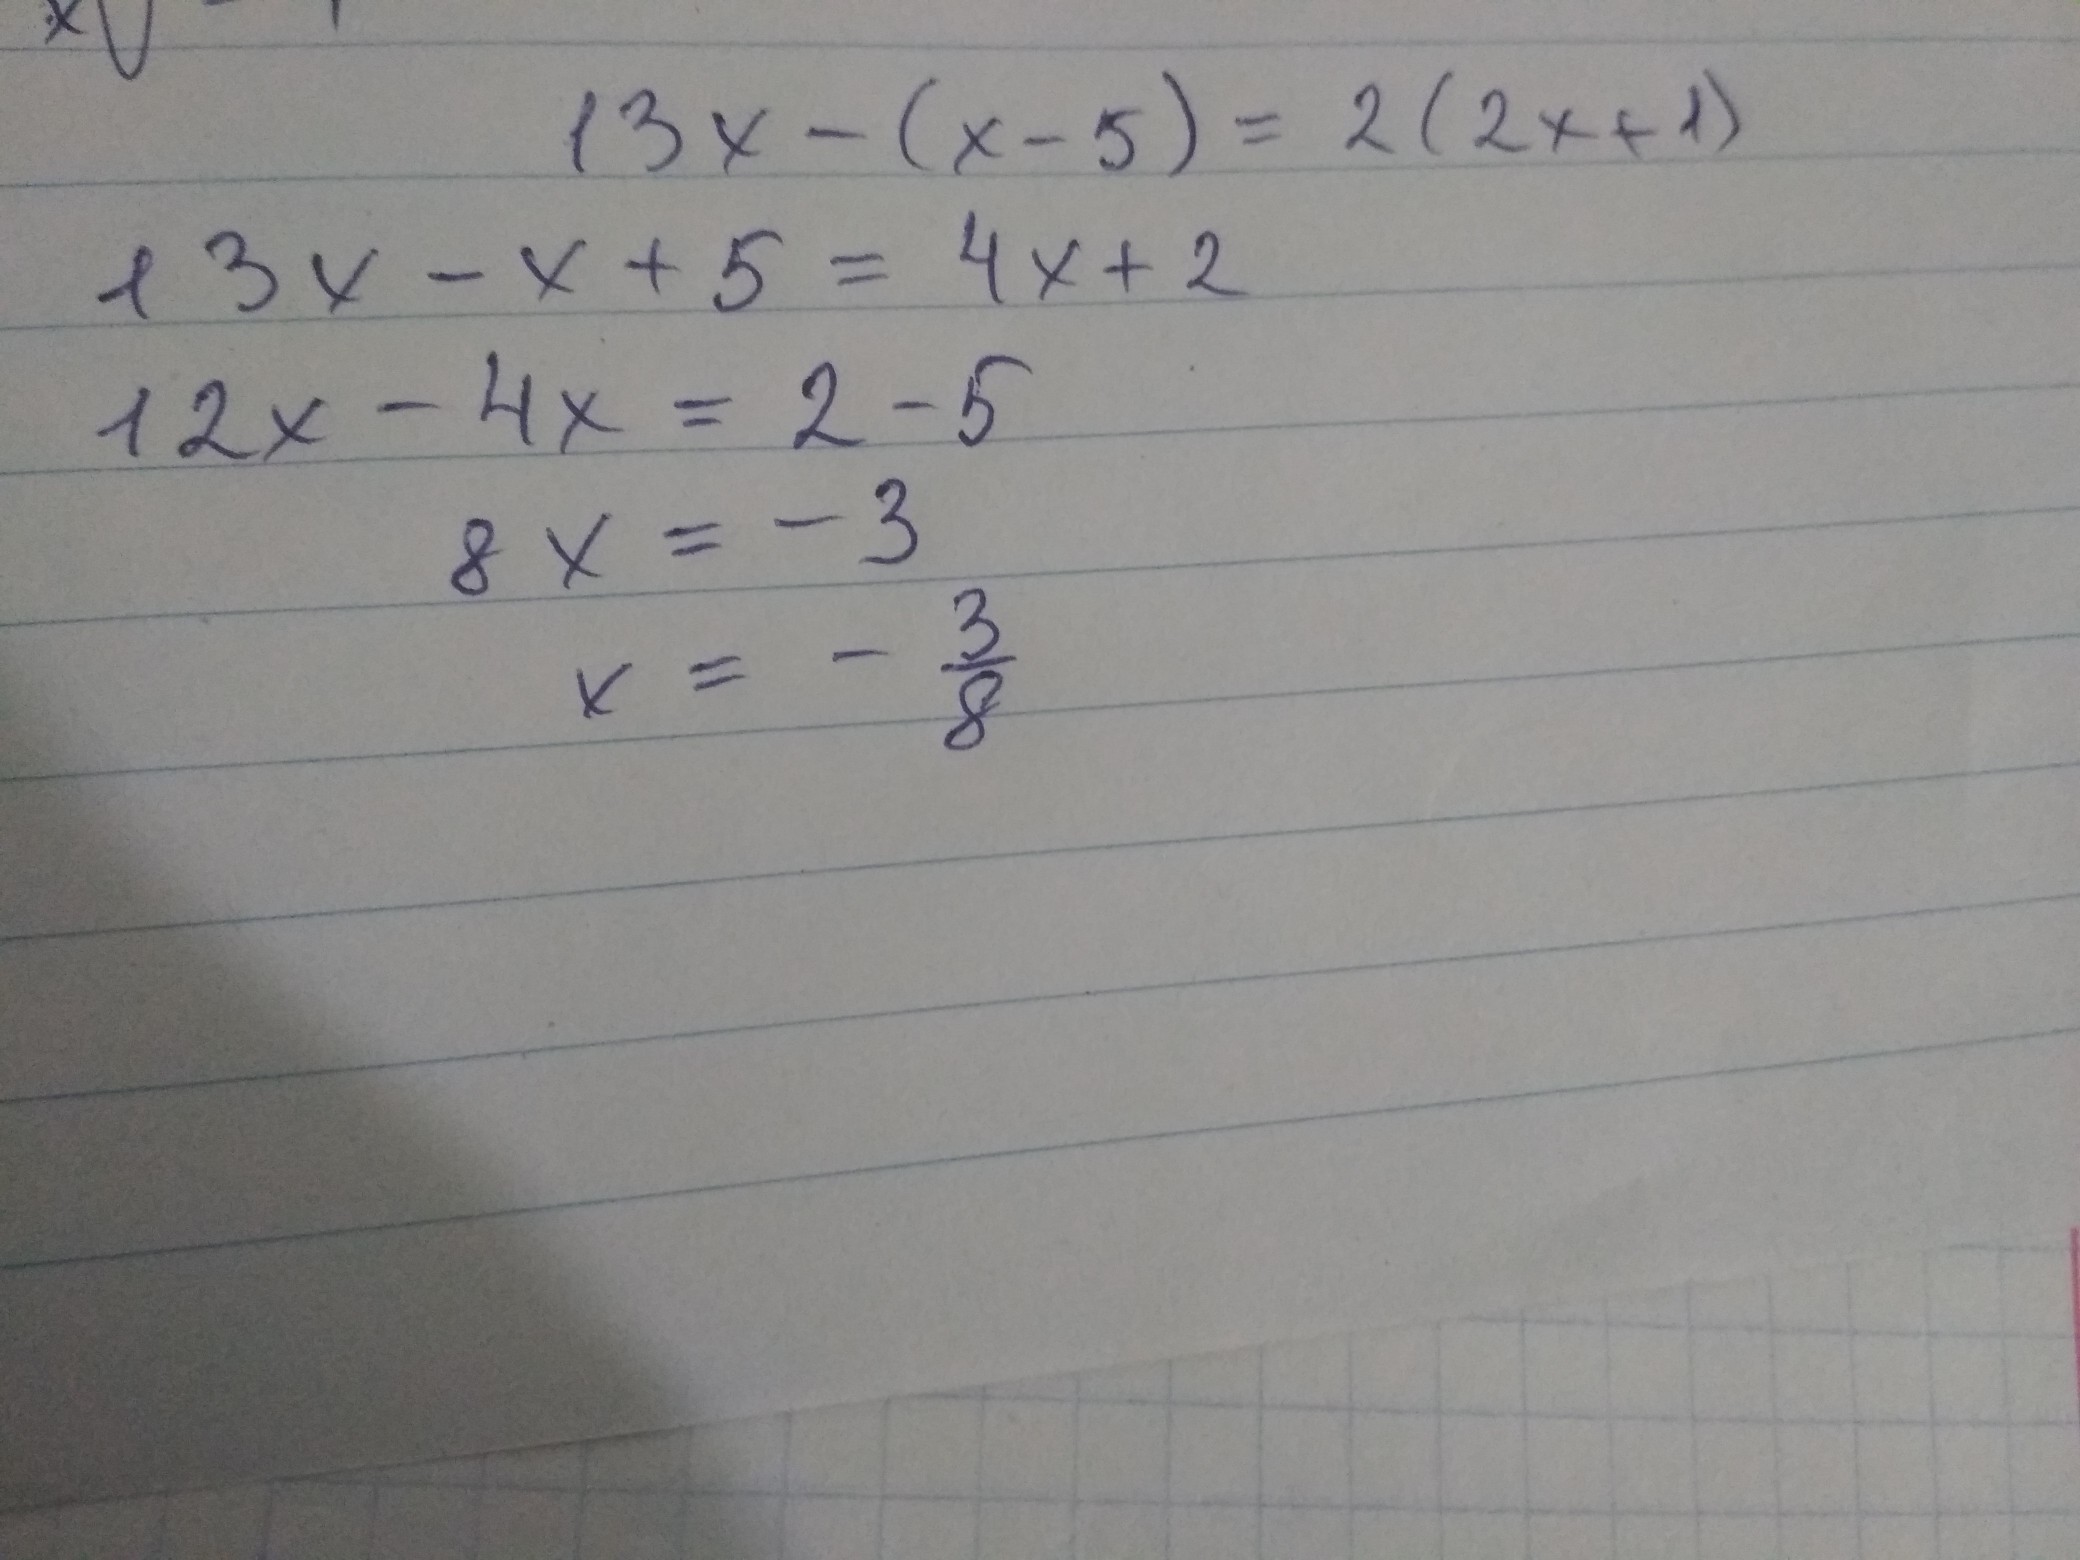 13x - (x - 5) = 2(2x + 1)
13x - x + 5 = 4x + 2
12x - 4x = 2 - 5
8x = -3
x = - 3/8